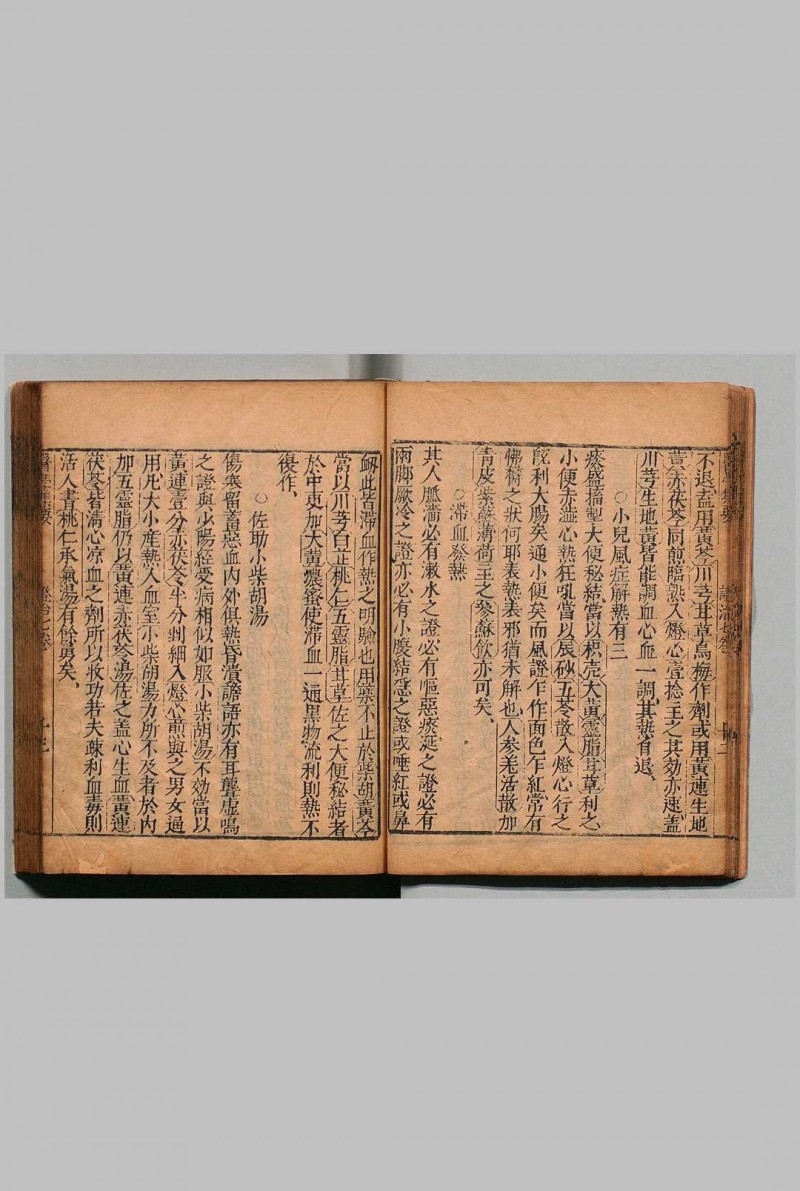 不退盖用黃芩川芎甘草烏梅作劑或用黃連生地
黃赤茯苓同煎臨熟入燈心壹捻主之其効亦速盖
川芎生地黃皆能調血心血一調其熱自退
○小兒風症解熱有三
痰盛搐掣大便秘結當以枳壳大黃靈脂甘草利之
小便赤澁心熱狂吼當以辰砂五苓散入燈心行之
旣利大腸矣通小便矣而風證乍作面色乍紅常有
怫欝之狀何耶表熱表邪猶未解也人參羗活散加
靑皮紫蘇薄荷主之參蘇飮亦可矣
○滯血發熱
其人脈濇必有漱水之證必有嘔惡痰涎之證必有
兩脚厥冷之證亦必有小腹結急之證或唾紅或鼻
衂此皆滯血作熱之明驗也用藥不止於柴胡黃芩
當以川芎白芷桃仁五靈脂甘草佐之大便秘結者
於中更加大黃濃蜜使滯血一通黑物流利則熱不
復作
○佐助小柴胡湯
傷寒留畜惡血內外俱熱昏憒譫語亦有耳聾虛鳴
之證與少陽經受病相似如服小柴胡湯不效當以
黃連壹分赤茯苓半分剉細入燈心煎與之男女通
用凡大小産熱入血室小柴胡湯力所不及者於內
加五靈脂仍以黃連赤茯苓湯佐之盖心生血黃連
茯苓皆淸心凉血之劑所以收功若夫疎利血毒則
活人書桃仁承氣湯有餘勇矣